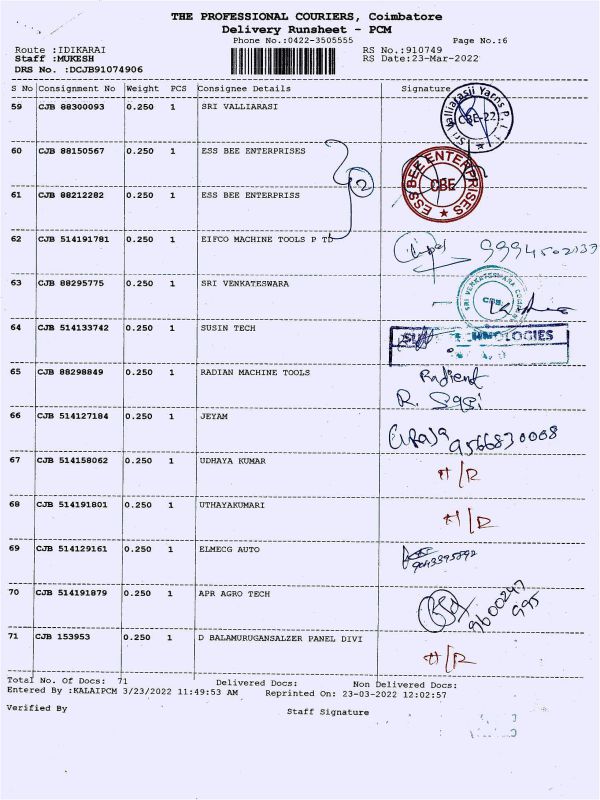 THE PROFESSIONAL COURIERS, Coimbatore
Delivery Runsheet - PCM
Phone No.:0422-3505555
Page No.:6
Route :IDIKARAI
RS No.:910749
Staff :MUKESH
RS Date:23-Mar-2022
DRS No. :DCJB91074906
S No Consignment No Weight PCS Consignee Details Signature
59 CJB 88300093 0.250 1 SRI VALLIARASI
Sri Valliarasii Yarns P. L. CBE-22
60 CJB 88150567 0.250 1 ESS BEE ENTERPRISES
ESS BEE ENTERPRISES CBE
61 CJB 88212282 0.250 1 ESS BEE ENTERPRISS
2
62 CJB 514191781 0.250 1 EIFCO MACHINE TOOLS P TD
63 CJB 88295775 0.250 1 SRI VENKATESWARA
SRI VENKATESHWARA CBE
64 CJB 514133742 0.250 1 SUSIN TECH
65 CJB 88298849 0.250 1 RADIAN MACHINE TOOLS
Radient
66 CJB 514127184 0.250 1 JEYAM
9566830008
67 CJB 514158062 0.250 1 UDHAYA KUMAR
H/R
68 CJB 514191801 0.250 1 UTHAYAKUMARI
H/R
69 CJB 514129161 0.250 1 ELMECG AUTO
70 CJB 514191879 0.250 1 APR AGRO TECH
9600297
995
71 CJB 153953 0.250 1 D BALAMURUGANSALZER PANEL DIVI
H/R
Total No. Of Docs: 71 Delivered Docs: Non Delivered Docs:
Entered By :KALAIPCM 3/23/2022 11:49:53 AM Reprinted On: 23-03-2022 12:02:57
Verified By Staff Signature